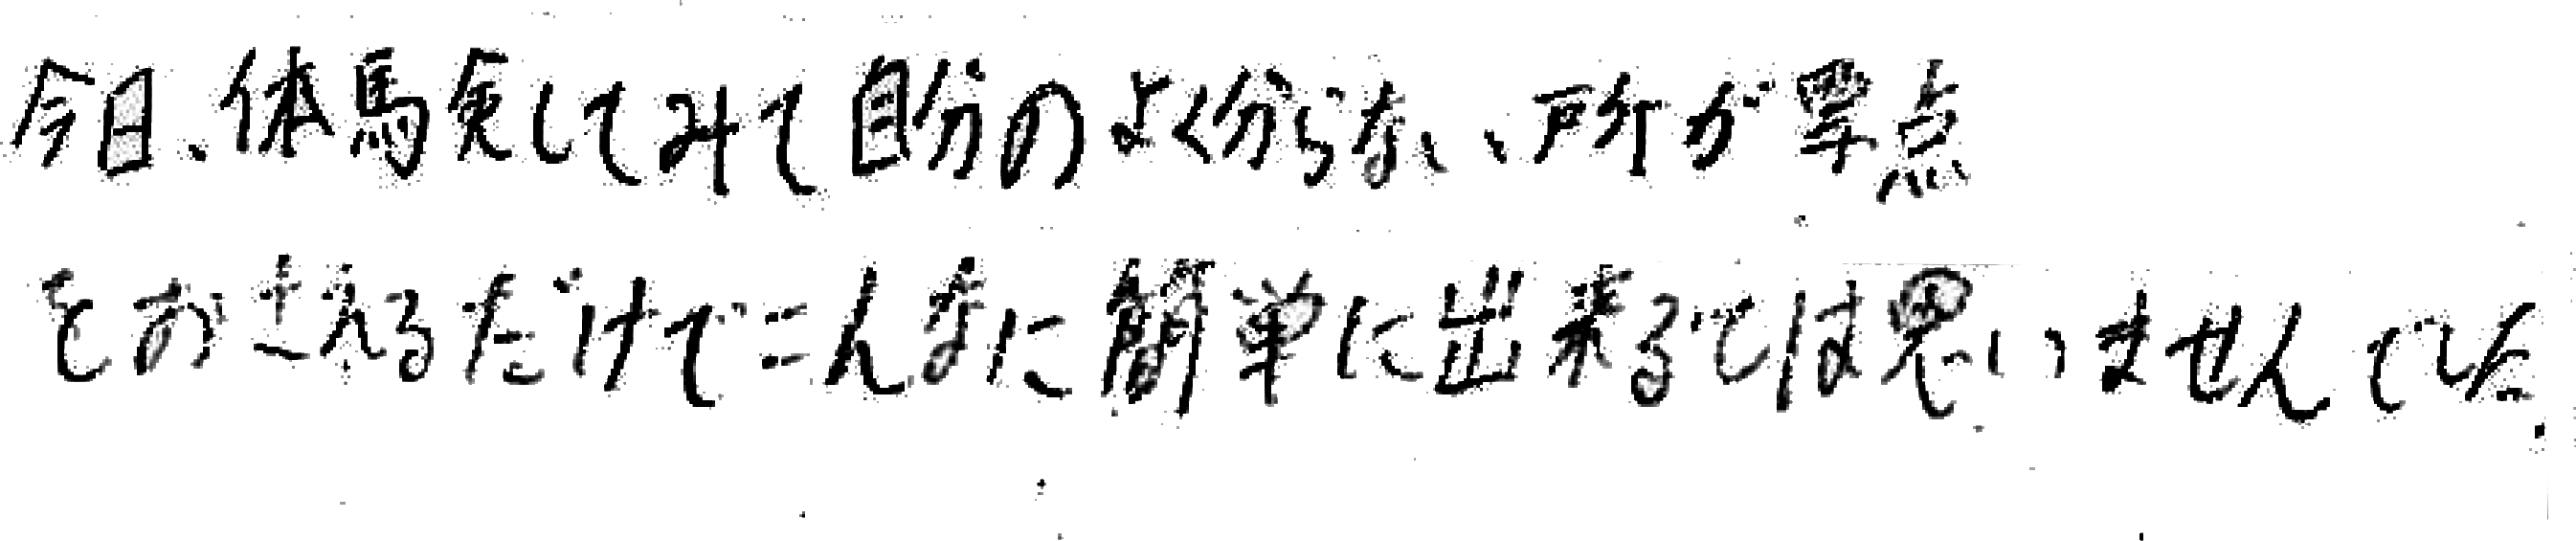 今日、体験してみて自分のよく分らない所が要点
をおさえるだけでこんなに簡単に出来るでは思いませんでした.